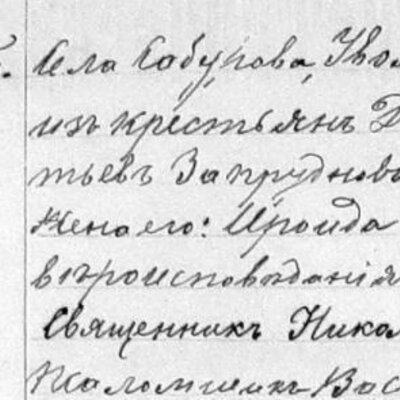 Села Собурова, Уво
изъ крестьянъ Д
тьевъ Запруднов
жена его: Ироида
вѣроисповѣданія
Священникъ Никол
Псаломщикъ Вас